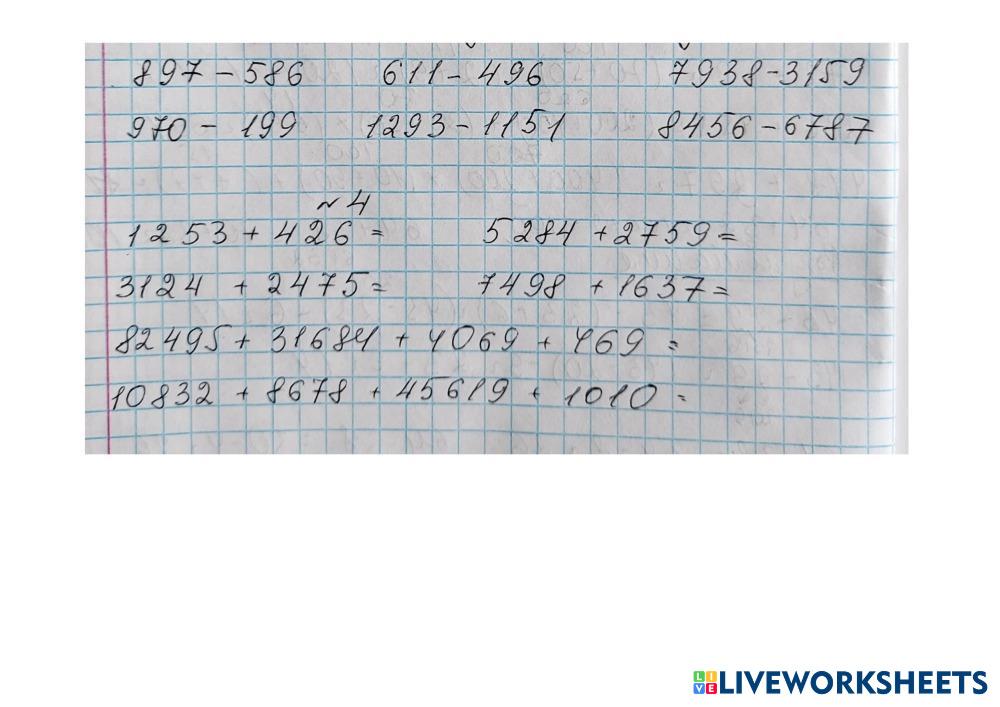 897 - 586 611 - 496 7938 - 3159
970 - 199 1293 - 1151 8456 - 6787
~ 4
1253 + 426 = 5284 + 2759 =
3124 + 2475 = 7498 + 1637 =
82495 + 31684 + 4069 + 469 =
10832 + 8678 + 45619 + 1010 =
LIVEWORKSHEETS